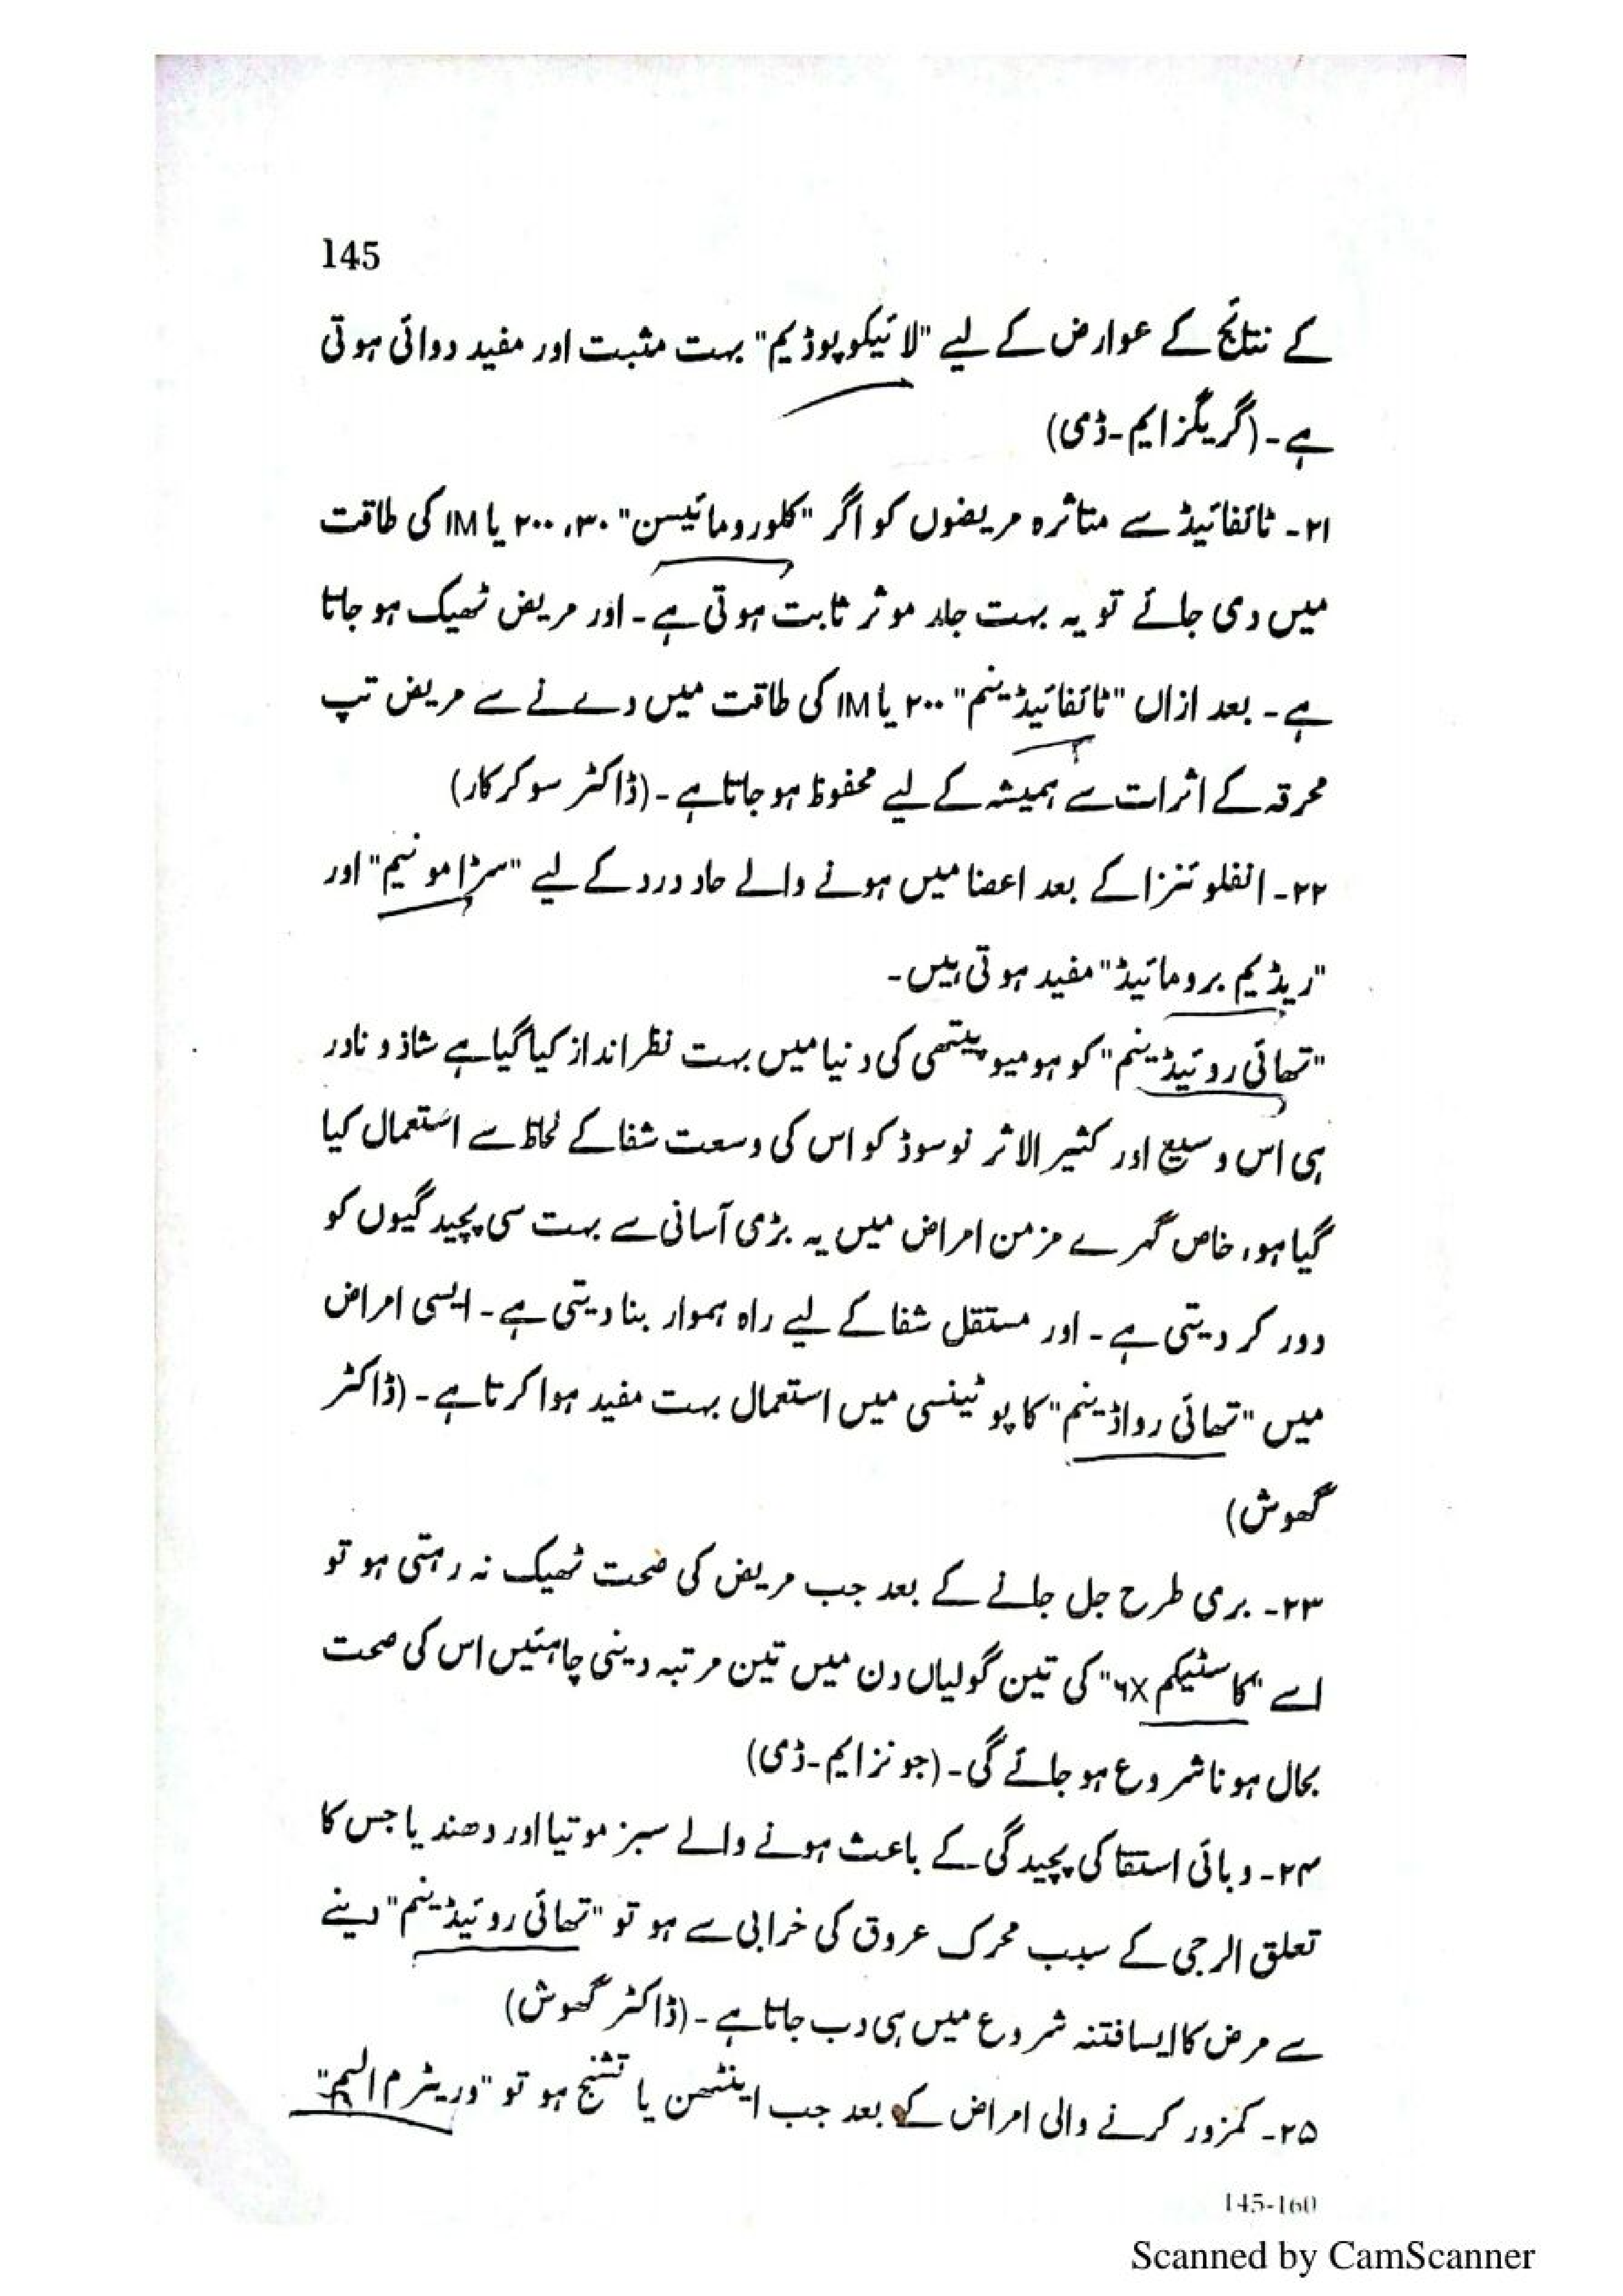 145
کے نتائج کے عوارض کے لیے "لائیکوپوڈیم" بہت مثبت اور مفید دوائی ہوتی
ہے۔ (گریگز ایم۔ڈی)
۲۱۔ ٹائفائیڈ سے متاثرہ مریضوں کو اگر "کلورومائیسن" ۳۰، ۲۰۰ یا IM کی طاقت
میں دی جائے تو یہ بہت جلد موثر ثابت ہوتی ہے۔ اور مریض ٹھیک ہو جاتا
ہے۔ بعد ازاں "ٹائفائیڈینم" ۲۰۰ یا IM کی طاقت میں دینے سے مریض تپ
محرقہ کے اثرات سے ہمیشہ کے لیے محفوظ ہو جاتا ہے۔ (ڈاکٹر سوکرکار)
۲۲۔ انفلوئنزا کے بعد اعضا میں ہونے والے حاد درد کے لیے "سٹرامونیم" اور
"ریڈیم برومائیڈ" مفید ہوتی ہیں۔
"تھائی روئیڈینم" کو ہومیوپیتھی کی دنیا میں بہت نظرانداز کیا گیا ہے شاذ و نادر
ہی اس وسیع اور کثیر الاثر نوسوڈ کو اس کی وسعت شفا کے لحاظ سے استعمال کیا
گیا ہو، خاص گہرے مزمن امراض میں یہ بڑی آسانی سے بہت سی پچیدگیوں کو
دور کر دیتی ہے۔ اور مستقل شفا کے لیے راہ ہموار بنا دیتی ہے۔ ایسی امراض
میں "تھائی رواڈینم" کا پوٹینسی میں استعمال بہت مفید ہوا کرتا ہے۔ (ڈاکٹر
گھوش)
۲۳۔ بری طرح جل جانے کے بعد جب مریض کی صحت ٹھیک نہ رہتی ہو تو
اسے "کاسٹیکم ۶X" کی تین گولیاں دن میں تین مرتبہ دینی چاہئیں اس کی صحت
بحال ہونا شروع ہو جائے گی۔ (جونز ایم۔ڈی)
۲۴۔ وبائی استقا کی پچیدگی کے باعث ہونے والے سبز موتیا اور دھند یا جس کا
تعلق الرجی کے سبب محرک عروق کی خرابی سے ہو تو "تھائی روئیڈینم" دینے
سے مرض کا ایسا فتنہ شروع میں ہی دب جاتا ہے۔ (ڈاکٹر گھوش)
۲۵۔ کمزور کرنے والی امراض کے بعد جب اینٹھن یا تشنج ہو تو "وریٹرم البم"
145-160
Scanned by CamScanner